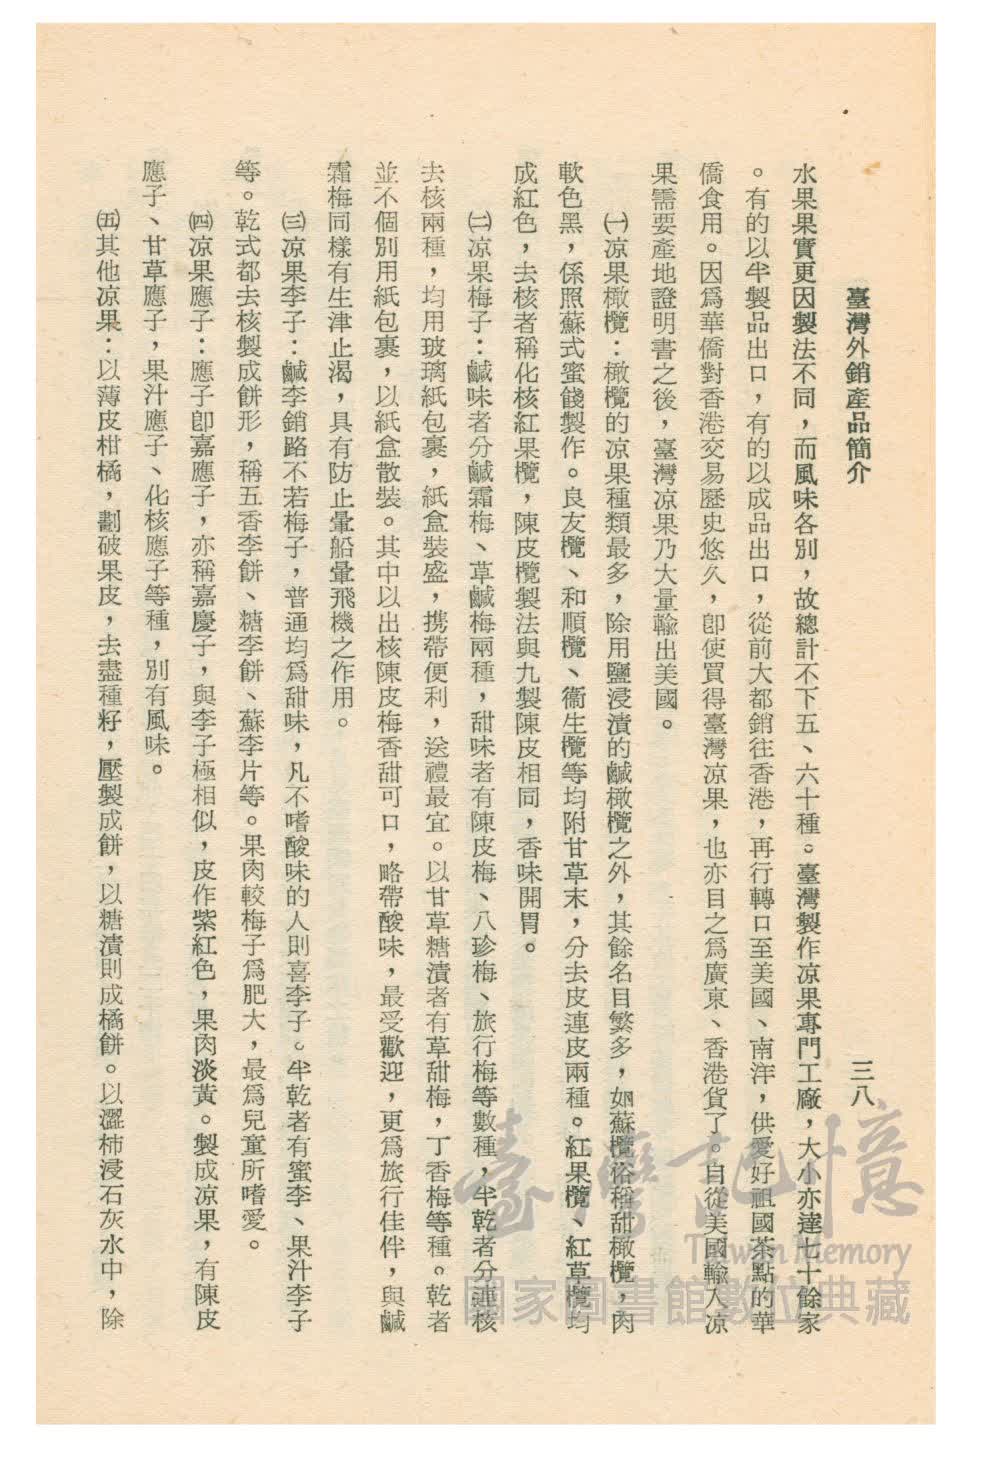 臺灣外銷產品簡介
三八
水果果實更因製法不同，而風味各別，故總計不下五、六十種。臺灣製作凉果專門工廠，大小亦達七十餘家
。有的以半製品出口，有的以成品出口，從前大都銷往香港，再行轉口至美國、南洋，供愛好祖國茶點的華
僑食用。因爲華僑對香港交易歷史悠久，卽使買得臺灣凉果，也亦目之爲廣東、香港貨了。自從美國輸入凉
果需要產地證明書之後，臺灣凉果乃大量輸出美國。
㈠凉果橄欖：橄欖的凉果種類最多，除用鹽浸漬的鹹橄欖之外，其餘名目繁多，如蘇欖俗稱甜橄欖，肉
軟色黑，係照蘇式蜜餞製作。良友欖、和順欖、衞生欖等均附甘草末，分去皮連皮兩種。紅果欖、紅草欖均
成紅色，去核者稱化核紅果欖，陳皮欖製法與九製陳皮相同，香味開胃。
㈡凉果梅子：鹹味者分鹹霜梅、草鹹梅兩種，甜味者有陳皮梅、八珍梅、旅行梅等數種，半乾者分連核
去核兩種，均用玻璃紙包裹，紙盒裝盛，携帶便利，送禮最宜。以甘草糖漬者有草甜梅，丁香梅等種。乾者
並不個別用紙包裹，以紙盒散裝。其中以出核陳皮梅香甜可口，略帶酸味，最受歡迎，更爲旅行佳伴，與鹹
霜梅同樣有生津止渴，具有防止暈船暈飛機之作用。
㈢凉果李子：鹹李銷路不若梅子，普通均爲甜味，凡不嗜酸味的人則喜李子。半乾者有蜜李、果汁李子
等。乾式都去核製成餅形，稱五香李餅、糖李餅、蘇李片等。果肉較梅子爲肥大，最爲兒童所嗜愛。
㈣凉果應子：應子卽嘉應子，亦稱嘉慶子，與李子極相似，皮作紫紅色，果肉淡黃。製成凉果，有陳皮
應子、甘草應子，果汁應子、化核應子等種，別有風味。
㈤其他凉果：以薄皮柑橘，劃破果皮，去盡種籽，壓製成餅，以糖漬則成橘餅。以澀柿浸石灰水中，除
臺灣記憶
Taiwan Memory
國家圖書館數位典藏